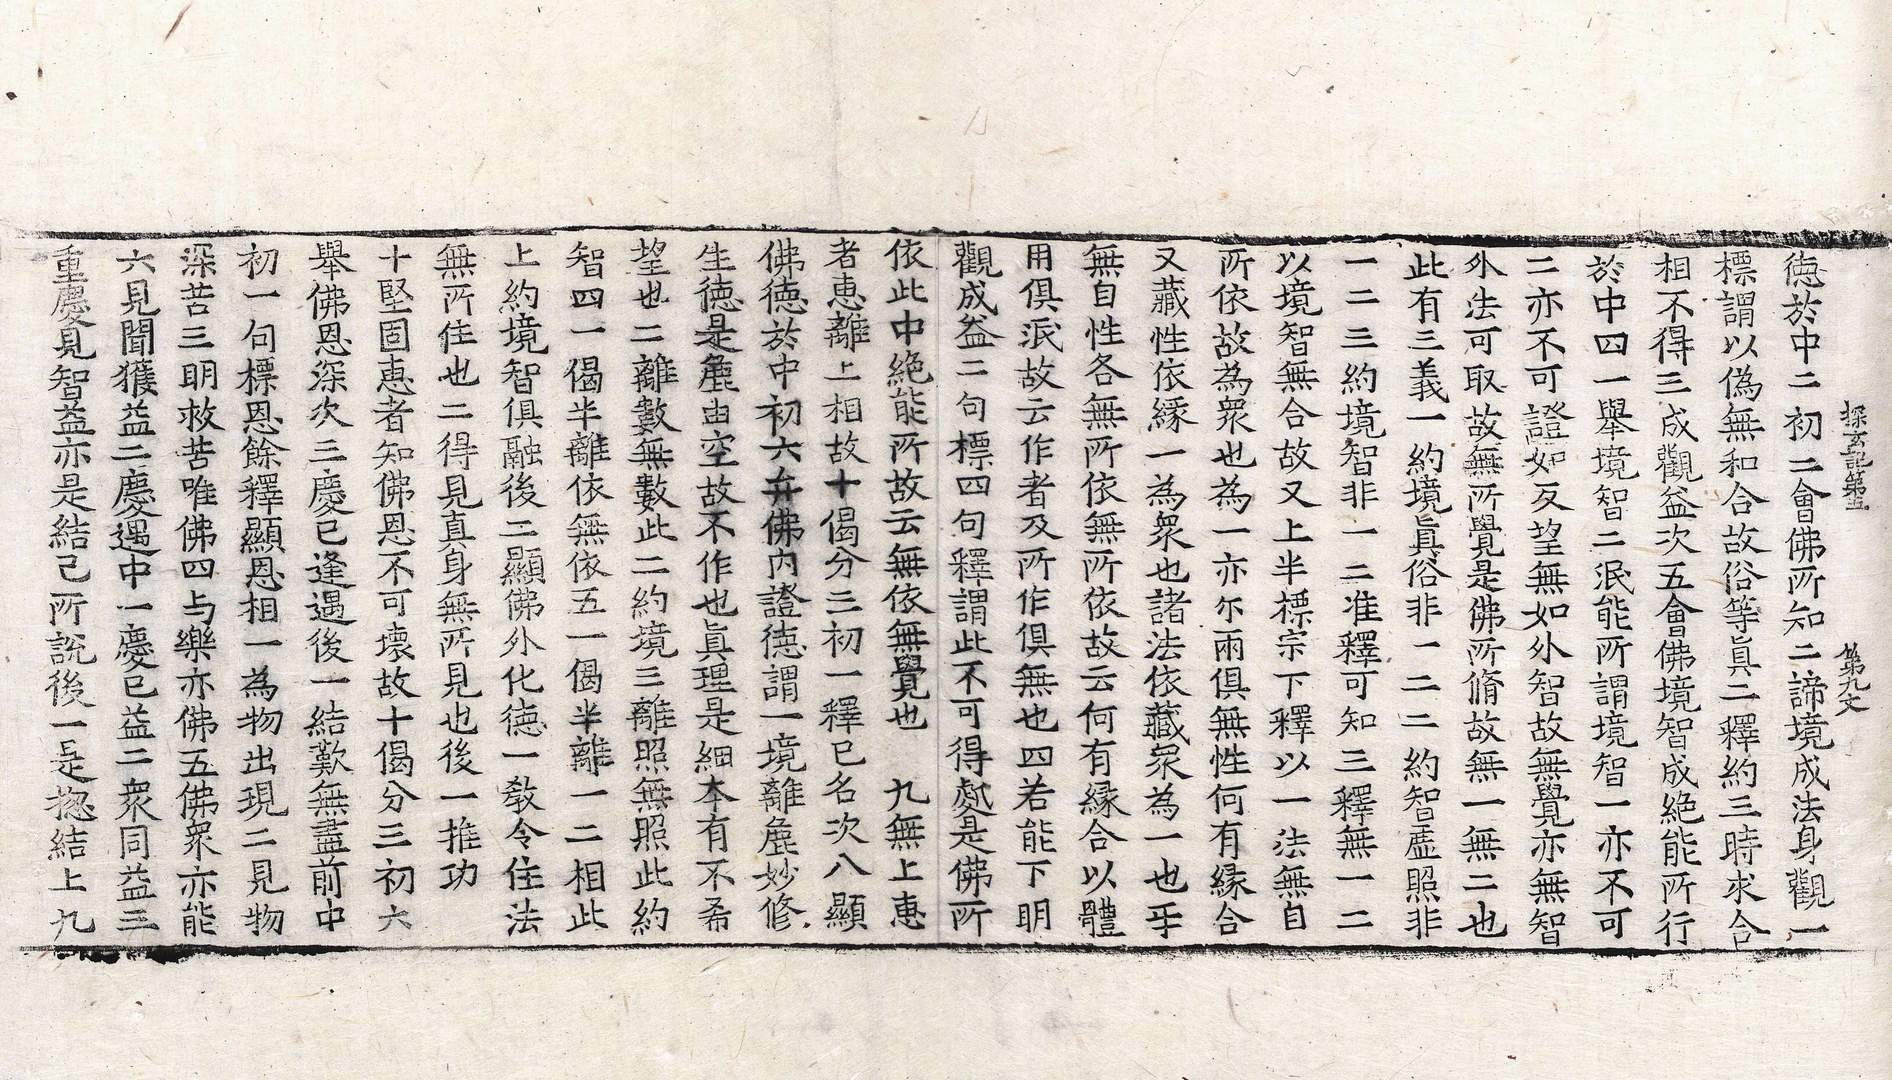 探玄記第五　第九丈
德於中二初二會佛所知二諦境成法身觀一
標謂以偽無和合故俗等眞二釋約三時求合
相不得三成觀益次五會佛境智成絕能所行
於中四一舉境智二泯能所謂境智一亦不可
二亦不可證如反望無如外智故無覺亦無智
外法可取故無所覺是佛所脩故無一無二也
此有三義一約境眞俗非一二二約智虛照非
一二三約境智非一二准釋可知三釋無一二
以境智無合故又上半標宗下釋以一法無自
所依故為衆也為一亦尒兩俱無性何有緣合
又藏性依緣一為衆也諸法依藏衆為一也乎
無自性各無所依無所依故云何有緣合以體
用俱泯故云作者及所作俱無也四若能下明
觀成益二句標四句釋謂此不可得處是佛所
依此中絕能所故云無依無覺也　九無上恵
者恵離上相故十偈分二初一釋已名次八顯
佛德於中初六弁佛內證德謂一境離麁妙修
生德是麁由空故不作也眞理是細本有不希
望也二離數無數此二約境三離照無照此約
智四一偈半離依無依五一偈半離一二相此
上約境智俱融後二顯佛外化德一敎令住法
無所住也二得見真身無所見也後一推功
十堅固恵者知佛恩不可壞故十偈分三初六
舉佛恩深次三慶已逢遇後一結歎無盡前中
初一句標恩餘釋顯恩相一為物出現二見物
深苦三明救苦唯佛四与樂亦佛五佛衆亦能
六見聞獲益二慶遇中一慶已益二衆同益三
重慶見智益亦是結己所說後一是捴結上九